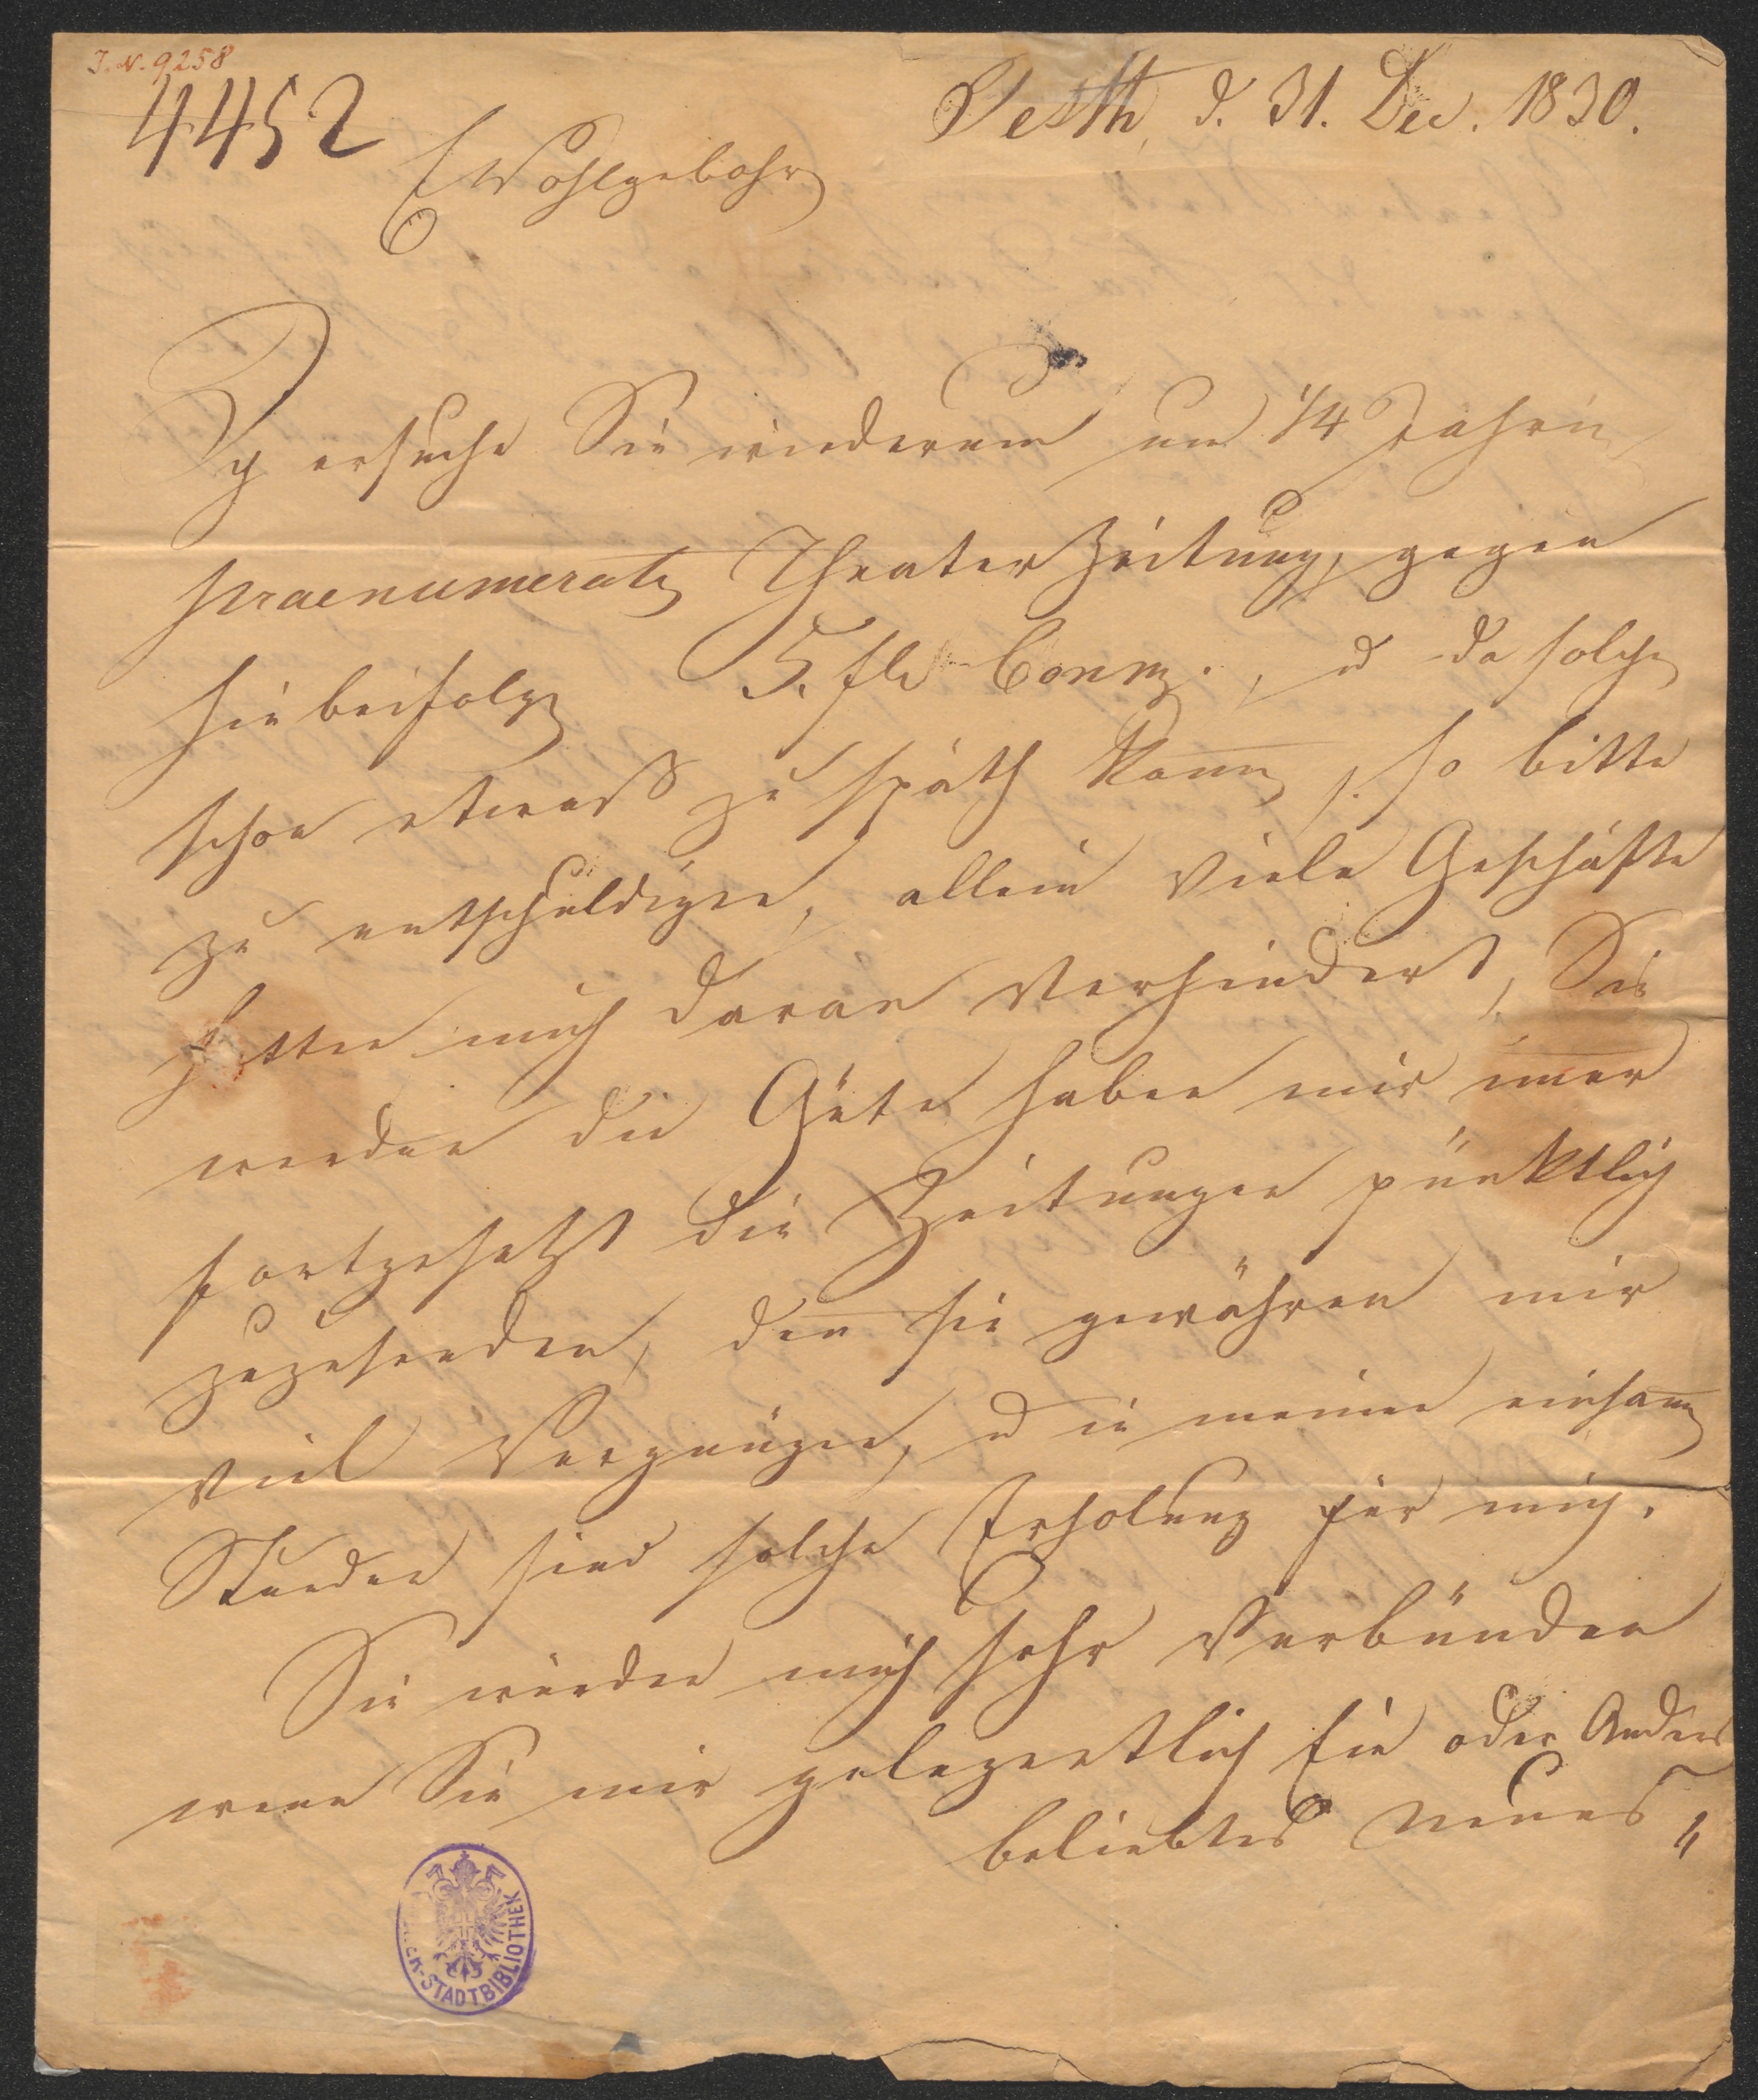 J. N. 9258
4452
Pesth, d. 31. Dec. 1830.
E Wohlgebohrn
Ich ersuche Sie wiederum um 1/4 Jahrig
praenumerat Theater Zeitung, gegen
hiebeifolgen 5. fl Conmz., u da solche
schon etwas zu späth komm, so bitte
zu entschuldigen, allein viele Geschäfte
hatten mich daran verhindert, Sie
werden die Güte haben mir imer
fortgesetzt die Zeitungen pünktlich
zuzusenden, den sie gewähren mir
viel Vergnügen, u in meinen einsamen
Stunden sind solche Erholung für mich.
Sie würden mich sehr verbünden
wenn Sie mir gelegentlich Ein oder Anders
beliebtes neues
STADTBIBLIOTHEK